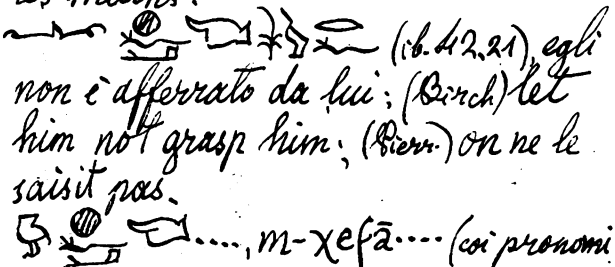 les mains.
(ib. 42, 21), egli
non è afferrato da lui; (Birch) let
him not grasp him; (Pierr.) on ne le
saisit pas.
...., m-χefā.... (coi pronomi